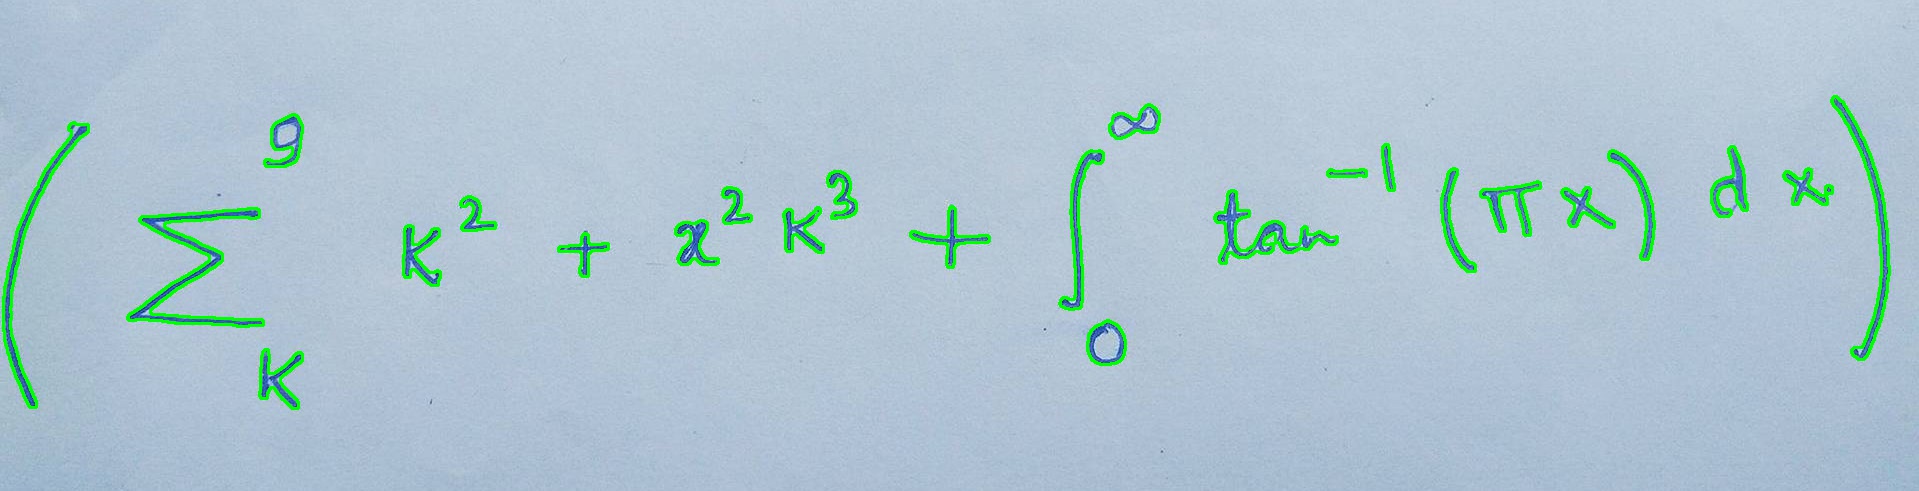 ( ∑_{K}^{9} K^2 + x^2 K^3 + ∫_{0}^{∞} tan^{-1} (πx) dx )